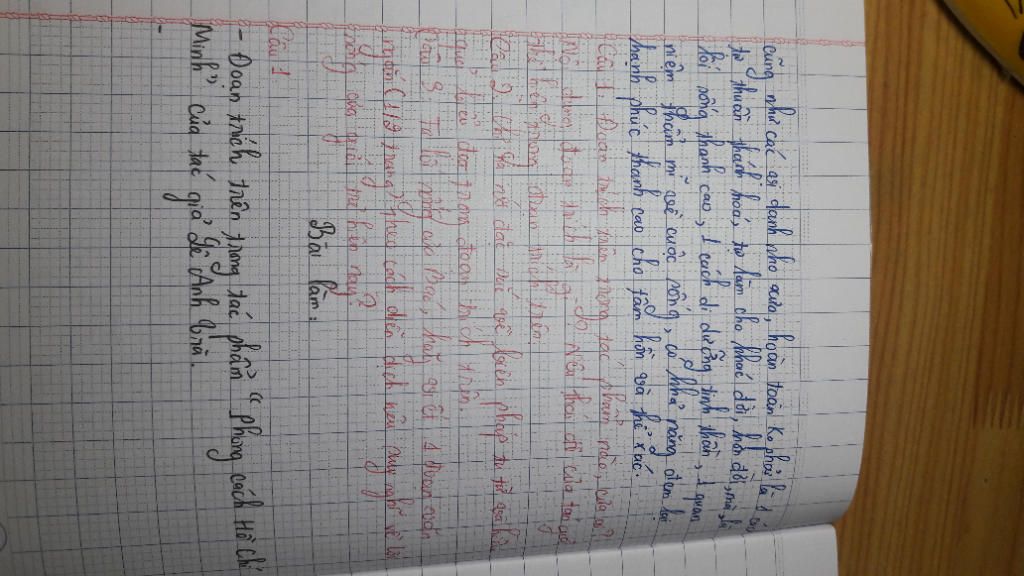 cũng như các vị danh nho xưa, hoàn toàn ko phải là 1 cách
tự thuần thánh hoá, tự làm cho khác đời, hơn đời, mà là
lối sống thanh cao, 1 cách di dưỡng tinh thần, 1 quan
niệm thẩm mĩ về cuộc sống, có khả năng đem lại
hạnh phúc thanh cao cho tâm hồn và thể xác.
Câu 1. Đoạn trích trên trong tác phẩm nào, của ai?
Nội dung đoạn trích là gì. Nêu thái độ của tác giả
thể hiện trong đoạn trích trên.
Câu 2. Chỉ ra nét đặc sắc về biện pháp tu từ và hiệu
quả biểu đạt trong đoạn trích trên.
Câu 3. Từ lối sống của Bác, hãy viết 1 đoạn văn
ngắn (1/2 trang) theo cách diễn dịch nêu suy nghĩ về lối
sống của giới trẻ hiện nay?
Bài làm:
Câu 1
- Đoạn trích trên trong tác phẩm "Phong cách Hồ Chí
Minh" của tác giả Lê Anh Trà.
-